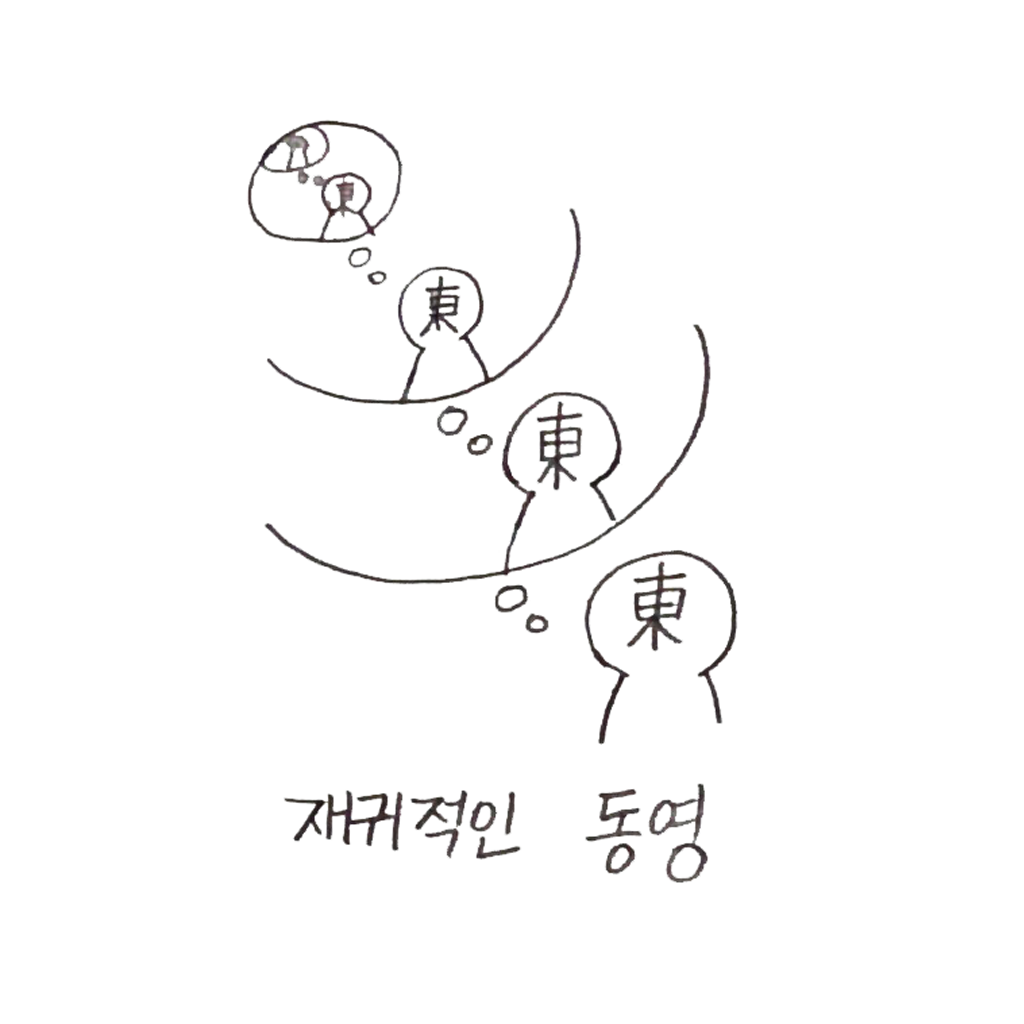 東
東
東
東
재귀적인 동영